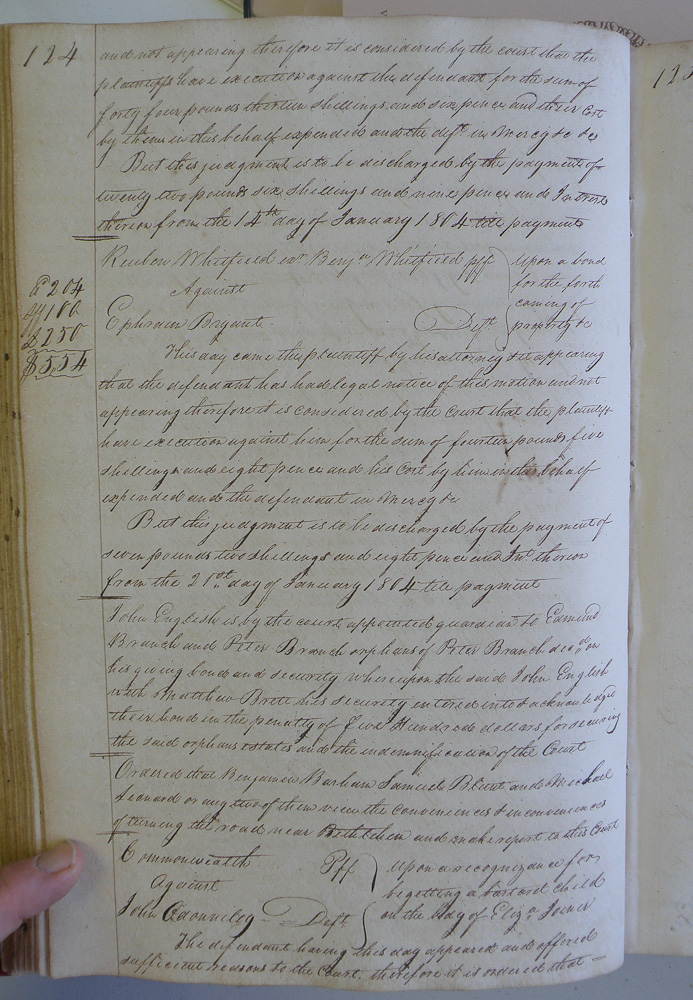 124
and not appearing therefore it is considered by the court that the
plaintiffs have execution against the defendant for the sum of
forty four pounds thirteen shillings and six pence and their Cost
by them in this behalf expended and the deft. in Mercy &c &c
But this judgment is to be discharged by the payment of
twenty two pounds six shillings and nine pence and Interest
thereon from the 14th day of January 1804 till payment
Reuben Whitfield exr Benja. Whitfield plff
Against
Ephraim Bryant Deft
Upon a bond
for the forth
coming of
property &c
204
100
250
$5.54
This day came the plaintiff by his attorney & it appearing
that the defendant has had legal notice of this motion and not
appearing therefore it is considered by the Court that the plaintiff
have execution against him for the sum of fourteen pounds five
shillings and eight pence and his Cost by him in this behalf
expended and the defendant in Mercy &c
But this judgment is to be discharged by the payment of
seven pounds two shillings and eight pence and Int. thereon
from the 21st day of January 1804 till payment
John English is by the court appointed guardian to Edmund
Branch and Peter Branch orphans of Peter Branch decd. on
his giving bond and security whereupon the said John English
with Matthew Britt his security entered into & acknowledged
their bond in the penalty of five Hundred dollars for securing
the said orphans estates and the indemnification of the Court
Ordered that Benjamin Barham Samuel Blunt and Michael
Leonard or any two of them view the Conveniences & inconveniences
of turning the road near Bethlehem and make report to this Court
Commonwealth Plff
Against
John Deft.
Upon a recognizance for
begetting a bastard child
on the body of Eliza. Joiner
The defendant having this day appeared and offered
sufficient reasons to the Court, therefore it is ordered that